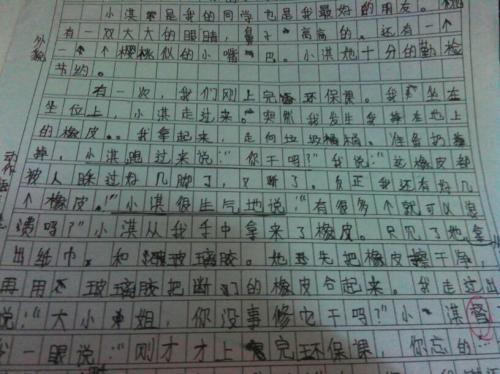 小淇是我的同学也是我最好的朋友。她
有一双大大的眼睛，鼻子高高的。还有一个
一个个樱桃似的小嘴巴。小淇她十分的勤俭
节约。
有一次，我们刚上完环保课。我坐在
坐位上，小淇走过来。突然我发生我掉在地上
的橡皮。我拿起来，走向垃圾桶。准备扔
掉，小淇跑过来说：“你干吗？”我说：“这橡皮都
被人踩过好几脚了，又断了。反正我还有好几
个橡皮。”小淇很生气地说：“有很多个就可以浪
费吗？”小淇从我手中拿来了橡皮。只见了她拿
出纸巾，和玻璃胶。她先把橡皮擦干净，
再用玻璃胶把断了的橡皮合起来。我走过
说：“大小姐，你没事修它干吗？”小淇督
我一眼说：“刚才才上完环保课，你忘的
外貌